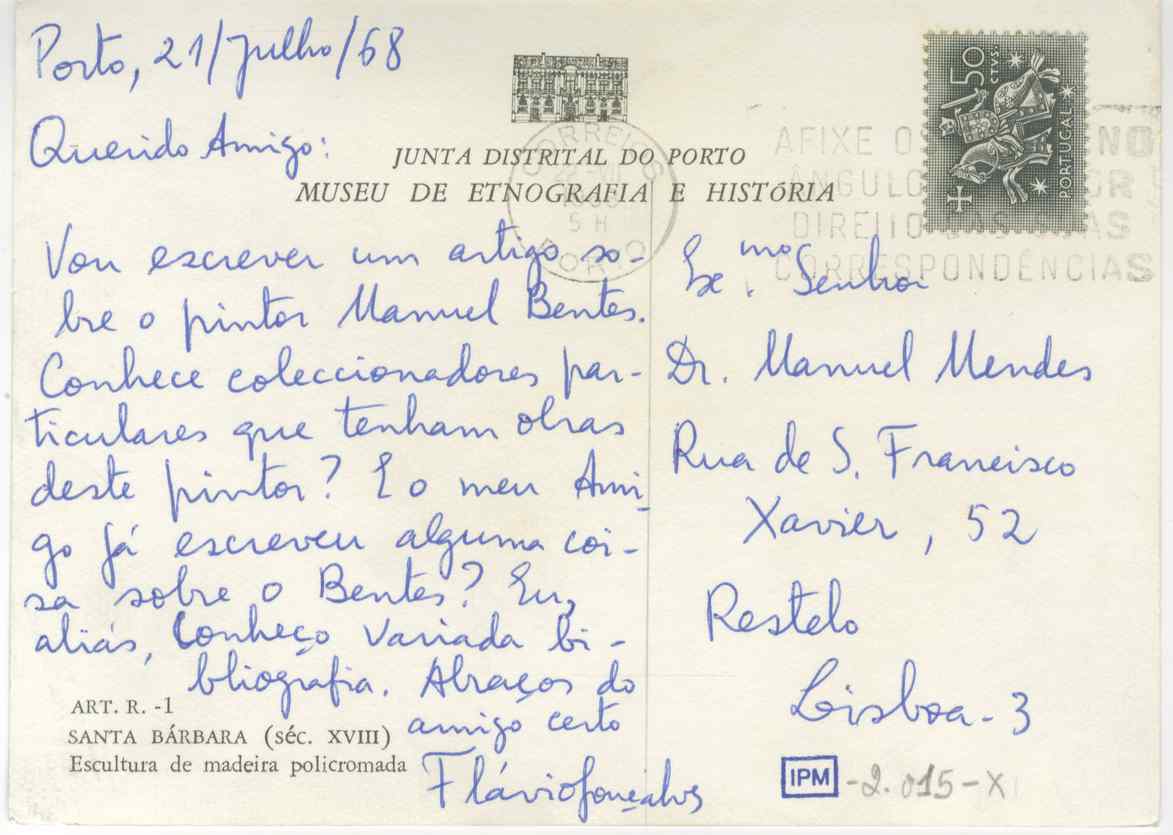 Porto, 21/Julho/68
Querido Amigo:
JUNTA DISTRITAL DO PORTO
MUSEU DE ETNOGRAFIA E HISTÓRIA
Vou escrever um artigo so-
bre o pintor Manuel Bentes.
Conhece coleccionadores par-
ticulares que tenham obras
deste pintor? E o meu Ami-
go já escreveu alguma coi-
sa sobre o Bentes? Eu,
aliás, conheço variada bi-
bliografia. Abraços do
amigo certo
Flávio Gonçalves
ART. R. -1
SANTA BÁRBARA (séc. XVIII)
Escultura de madeira policromada
50
CTVS.
PORTUGAL
CORREIOS
5 H
PORTO
AFIXE
DIREITO
CORRESPONDÊNCIAS
Ex.mo Senhor
Dr. Manuel Mendes
Rua de S. Francisco
Xavier, 52
Restelo
Lisboa - 3
IPM -2.015-X